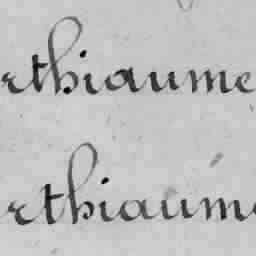 rthiaume
rthiaume